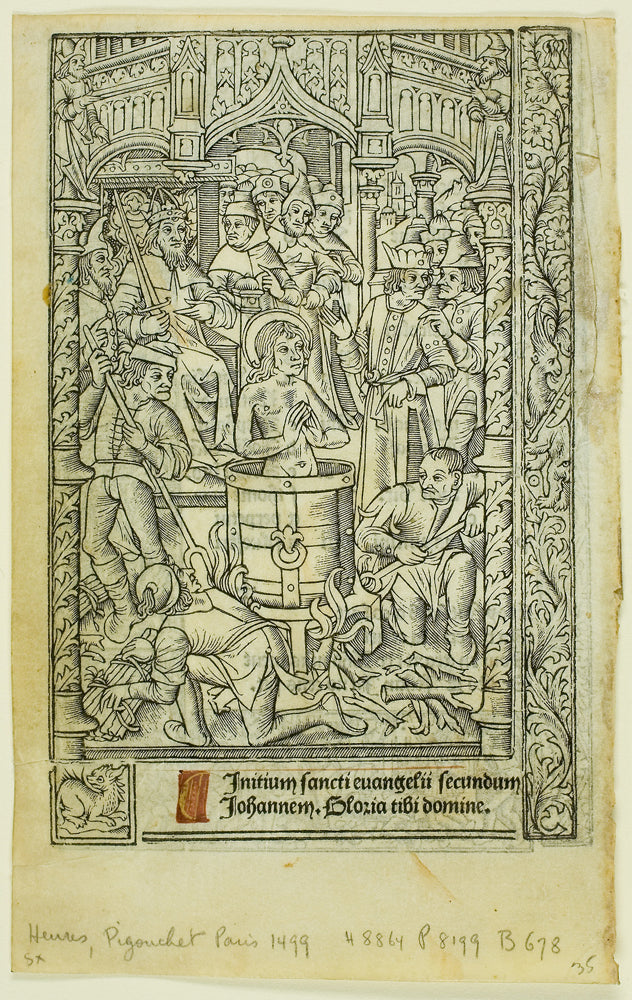 Initium sancti euangelii secundum
Johannem. Gloria tibi domine.
Heures, Pigouchet Paris 1499 H 8864 P 8199 B 678
35